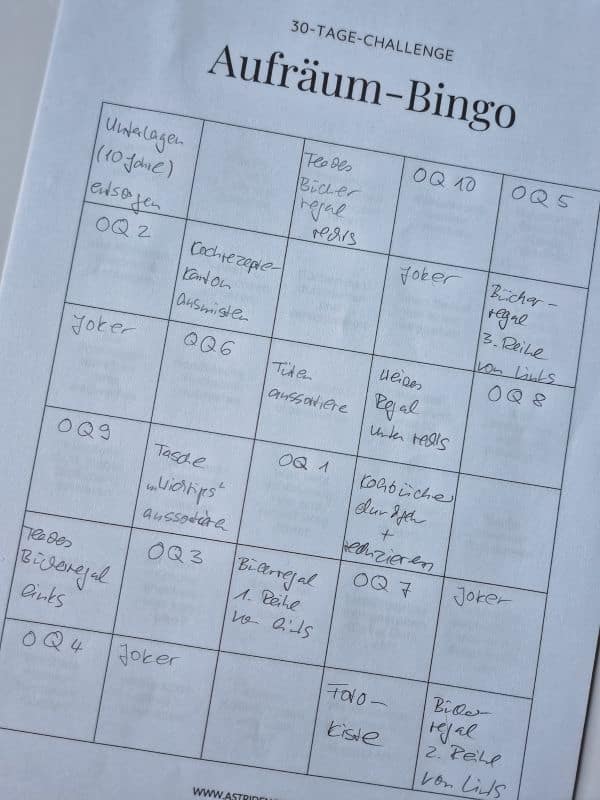 30-TAGE-CHALLENGE
Aufräum-Bingo
Unterlagen
(10 Jahre)
entsorgen
Bücher
regal
rechts
OQ 10
OQ 5
OQ 2
Kochrezepte-
Karton
ausmisten
Joker
Bücher-
regal
3. Reihe
von links
Joker
OQ6
Tüten
aussortiere
Regal
unten rechts
OQ 8
OQ9
Tasche
aussortieren
OQ 1
Kochbücher
+
reduzieren
Bücherregal
links
OQ 3
Bücherregal
1. Reihe
von links
OQ 7
Joker
OQ 4
Joker
Foto-
kiste
Bücher
regal
2. Reihe
von links